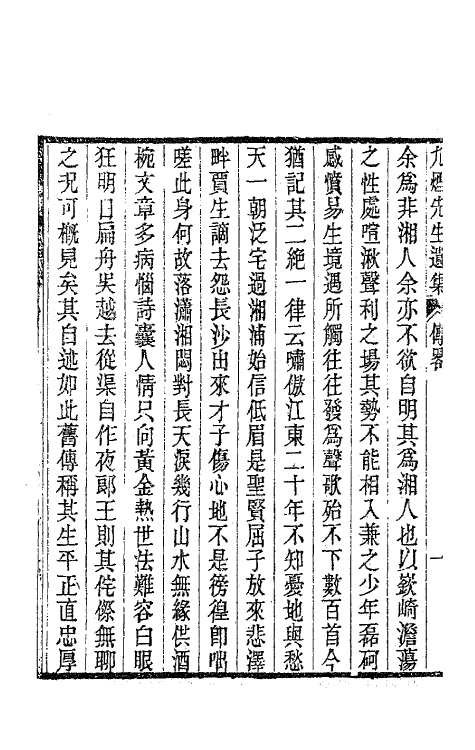 九煙先生遺集 傳畧 一
余爲非湘人余亦不欲自明其爲湘人也以嶔崎澹蕩
之性處喧湫聲利之場其勢不能相入兼之少年磊砢
感憤易生境遇所觸往往發爲聲歌殆不下數百首今
猶記其二絶一律云嘯傲江東二十年不知憂地與愁
天一朝泛宅過湘浦始信低眉是聖賢屈子放來悲澤
畔賈生謫去怨長沙出來才子傷心地不是徬徨卽咄
嗟此身何故落瀟湘悶對長天淚幾行山水無緣供酒
椀文章多病惱詩囊人情只向黃金熱世法難容白眼
狂明日扁舟吳越去從渠自作夜郞王則其侘傺無聊
之况可概見矣其自述如此舊傳稱其生平正直忠厚